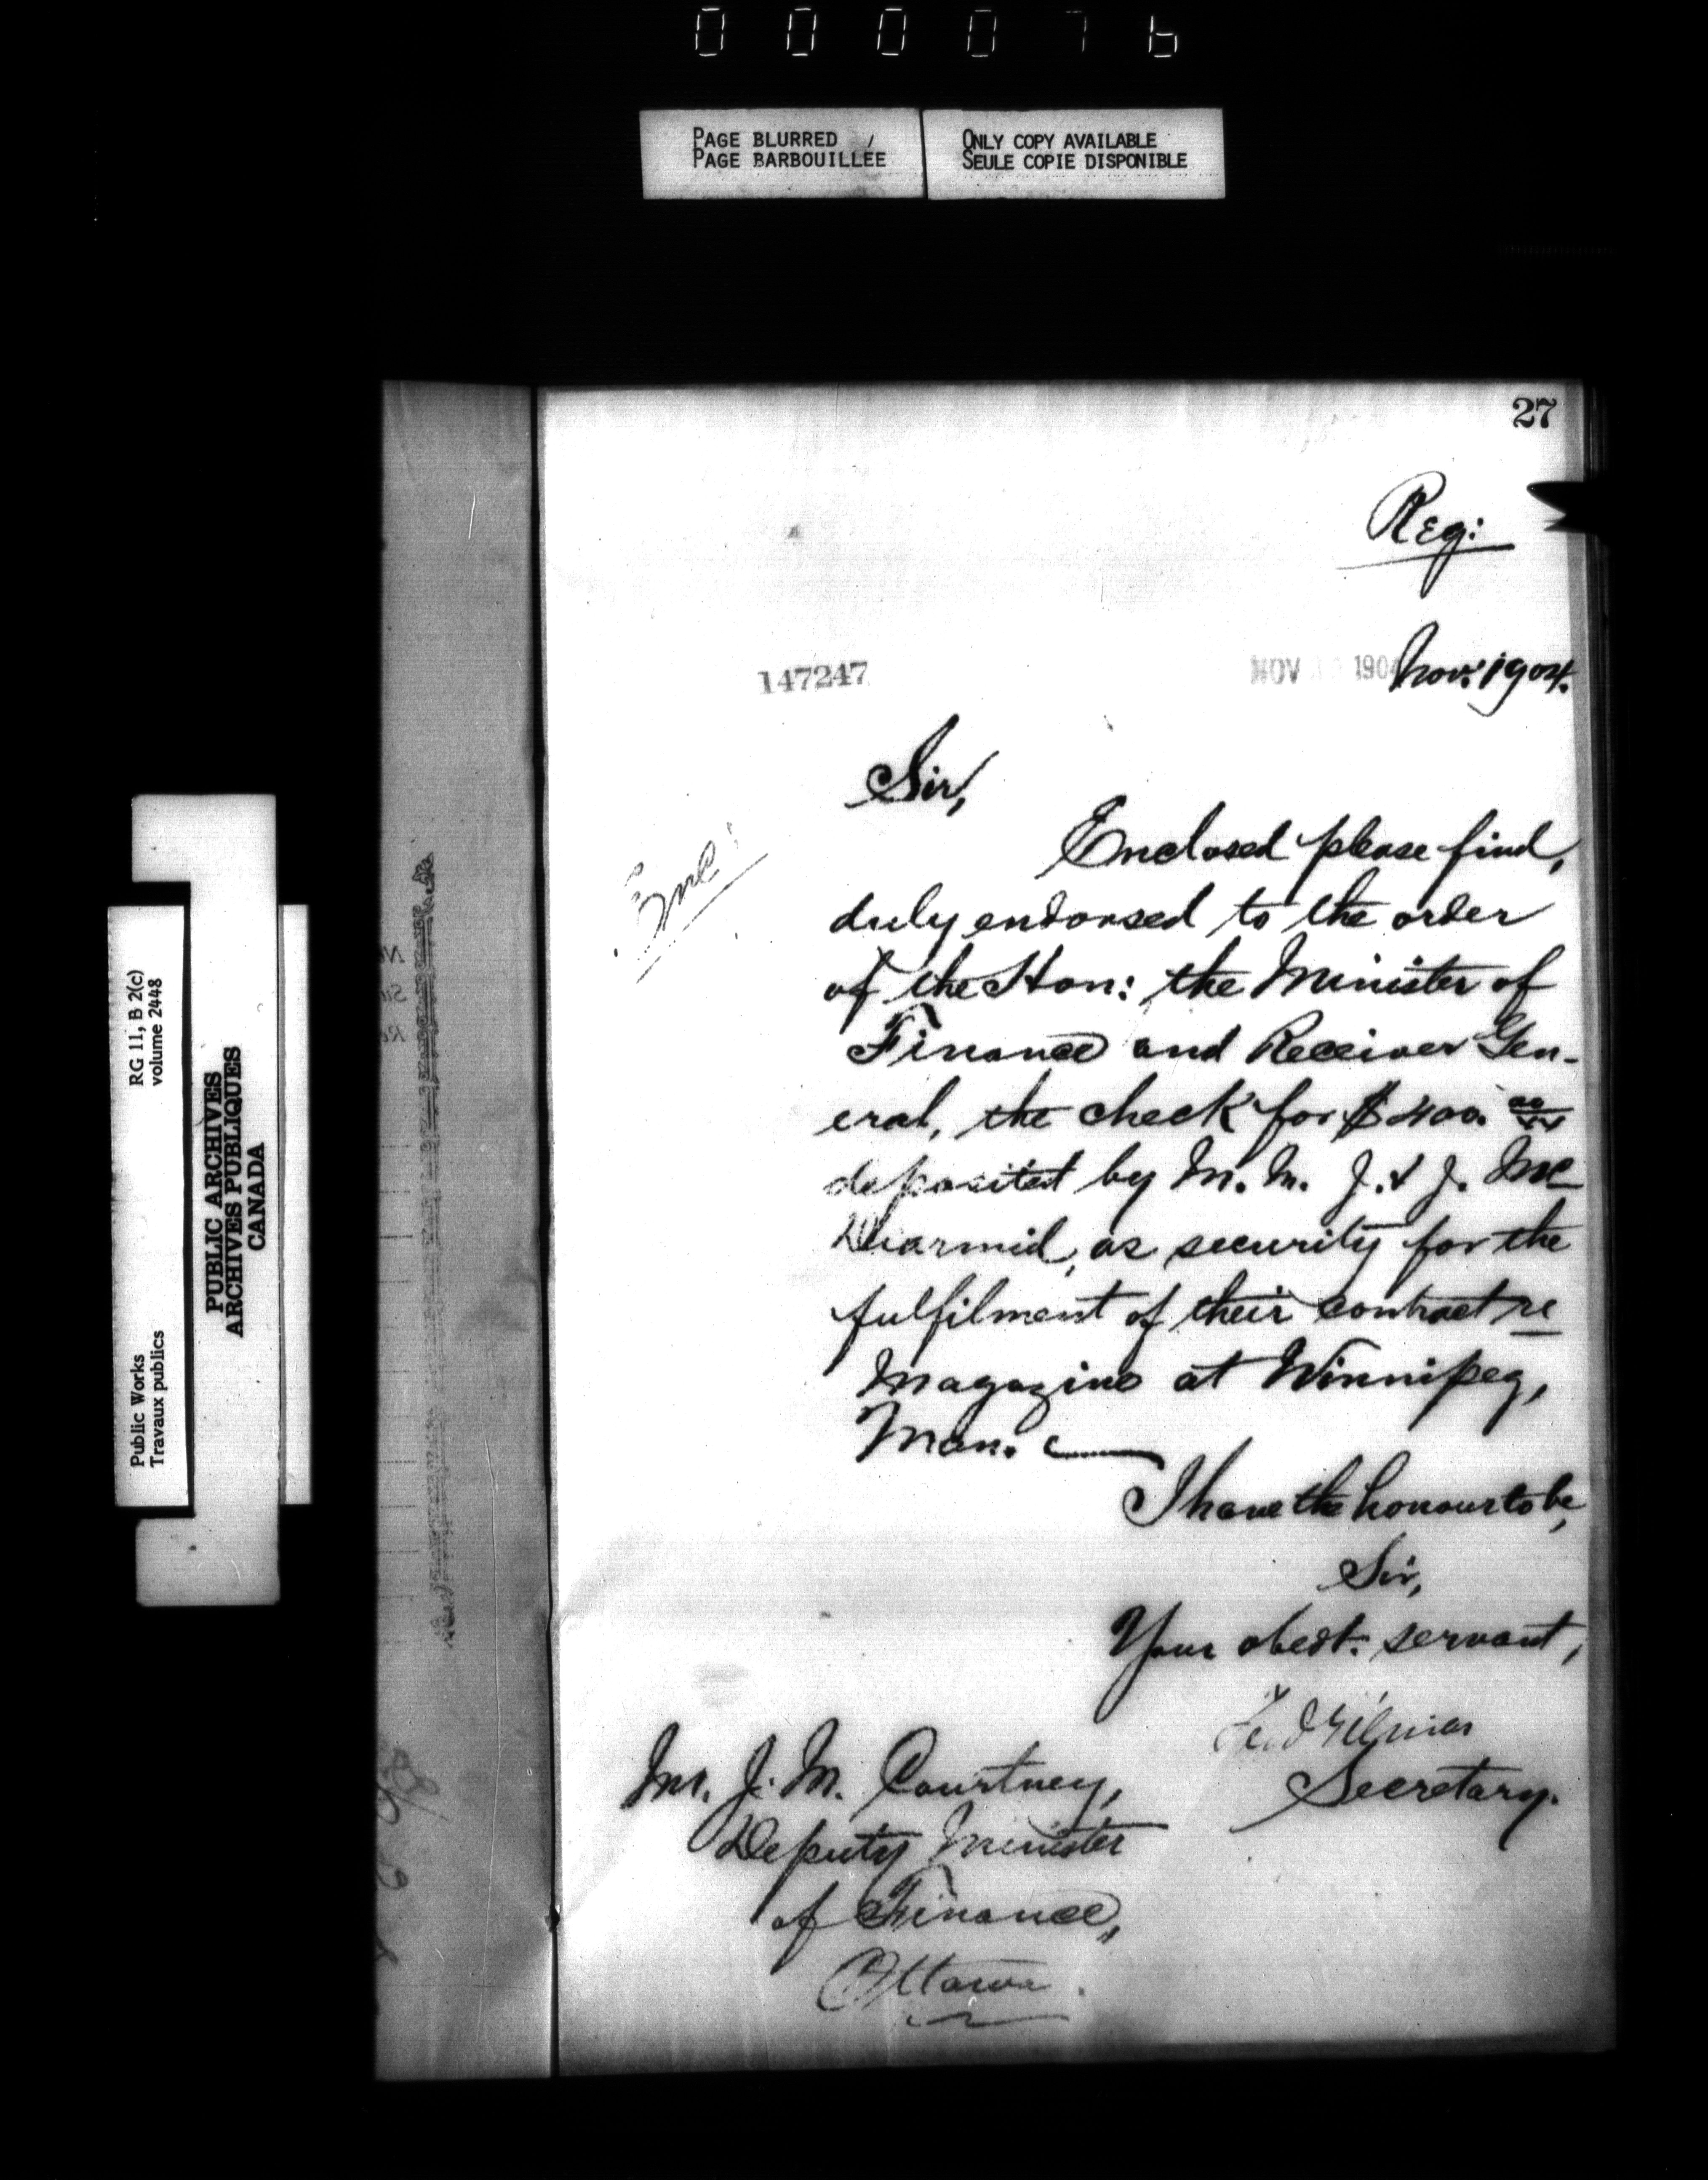 0 0 0 0 7 6
PAGE BLURRED /
PAGE BARBOUILLÉE
ONLY COPY AVAILABLE
SEULE COPIE DISPONIBLE
27
Reg:
147247
NOV 1904 Nov: 1904.
Sir,
Enc:
Enclosed please find,
duly endorsed to the order
of the Hon: the Minister of
Finance and Receiver Gen-
eral, the check for $400. 00/xx
deposited by M. M. J. & J. Mc
Diarmid, as security for the
fulfilment of their contract re
Magazine at Winnipeg,
Man.
I have the honour to be,
Sir,
Your obedt. servant,
Secretary.
Mr. J. M. Courtney,
Deputy Minister
of Finance,
Ottawa.
RG 11, B 2(c)
volume 2448
PUBLIC ARCHIVES
ARCHIVES PUBLIQUES
CANADA
Public Works
Travaux publics